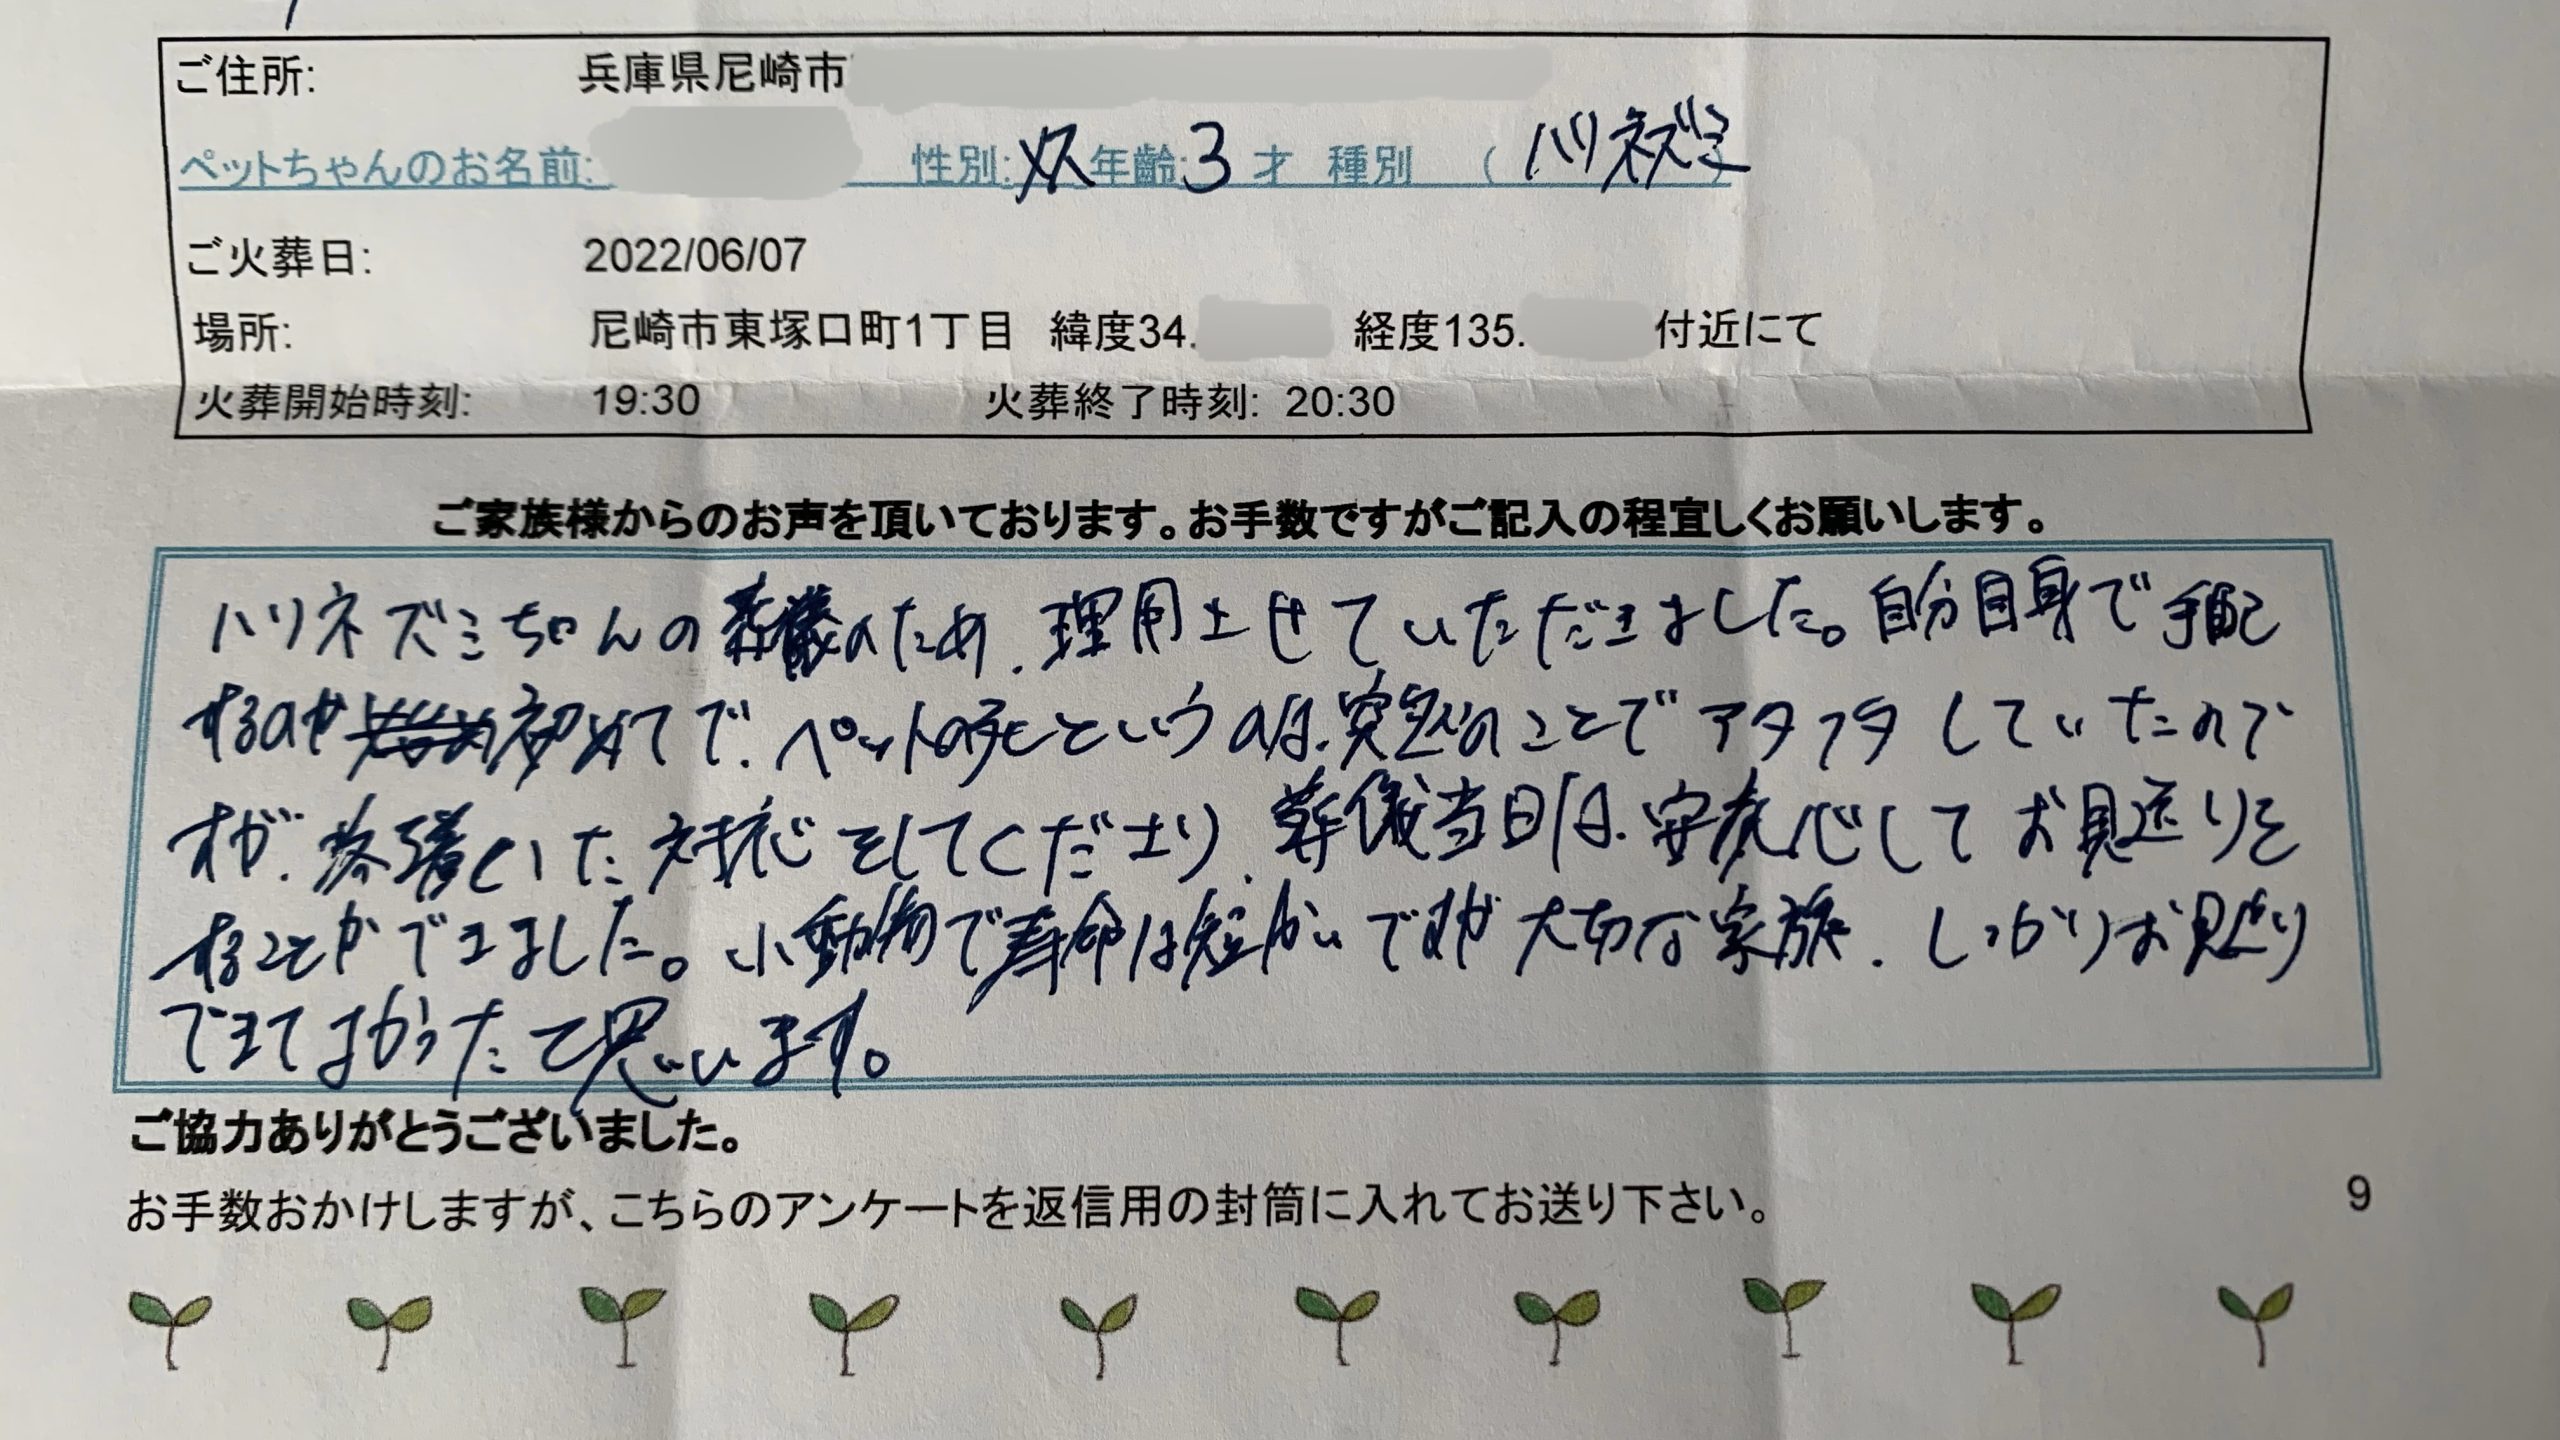 ご住所: 兵庫県尼崎市
ペットちゃんのお名前: 性別:メス 年齢:3才 種別 (ハリネズミ)
ご火葬日: 2022/06/07
場所: 尼崎市東塚口町1丁目 緯度34. 経度135. 付近にて
火葬開始時刻: 19:30 火葬終了時刻: 20:30
ご家族様からのお声を頂いております。お手数ですがご記入の程宜しくお願いします。
ハリネズミちゃんの葬儀のため、理用させていただきました。自分自身で手配
するのが初めてで、ペットの死というのは、突然のことでアタフタしていたので
すが、落ち着いた対応をしてくださり、葬儀当日は、安心してお見送りを
することができました。小動物で寿命は短かいですが大切な家族、しっかりお見送り
できてよかったて思います。
ご協力ありがとうございました。
お手数おかけしますが、こちらのアンケートを返信用の封筒に入れてお送り下さい。 9